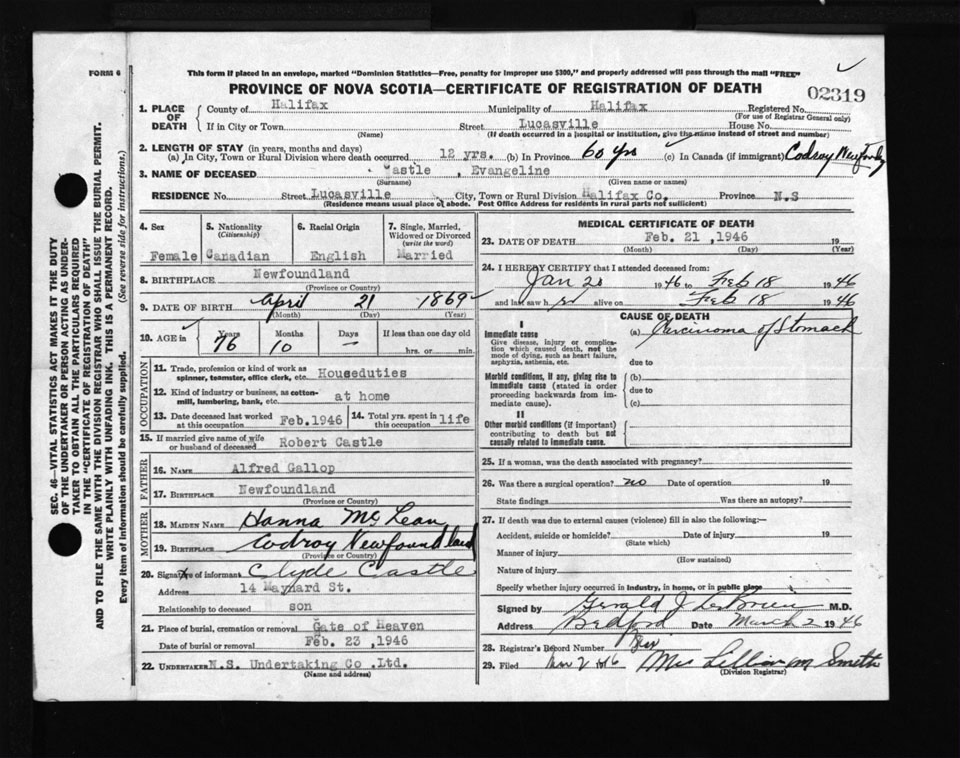 FORM 6
This form if placed in an envelope, marked "Dominion Statistics—Free, penalty for improper use $300," and properly addressed will pass through the mail "FREE"
PROVINCE OF NOVA SCOTIA—CERTIFICATE OF REGISTRATION OF DEATH
02319
1. PLACE OF DEATH County of Halifax Municipality of Halifax Registered No.
(For use of Registrar General only)
If in City or Town Street Lucasville House No.
(Name) (If death occurred in a hospital or institution, give the name instead of street and number)
2. LENGTH OF STAY (in years, months and days)
(a) In City, Town or Rural Division where death occurred 12 yrs. (b) In Province 60 yrs (c) In Canada (if immigrant) Codroy
3. NAME OF DECEASED Castle , Evangeline
(Surname) (Given name or names)
RESIDENCE No. Street Lucasville City, Town or Rural Division Halifax Co. Province N.S
(Residence means usual place of abode. Post Office Address for residents in rural parts not sufficient)
4. Sex Female
5. Nationality (Citizenship) Canadian
6. Racial Origin English
7. Single, Married, Widowed or Divorced (write the word) Married
8. BIRTHPLACE Newfoundland
(Province or Country)
9. DATE OF BIRTH April 21 1869
(Month) (Day) (Year)
10. AGE in Years 76 Months 10 Days — If less than one day old
hrs. or min.
OCCUPATION
11. Trade, profession or kind of work as spinner, teamster, office clerk, etc. Houseduties
12. Kind of industry or business, as cotton-mill, lumbering, bank, etc. at home
13. Date deceased last worked at this occupation Feb.1946
14. Total yrs. spent in this occupation life
15. If married give name of wife or husband of deceased Robert Castle
FATHER
16. NAME Alfred Gallop
17. BIRTHPLACE Newfoundland
(Province or Country)
MOTHER
18. MAIDEN NAME Hanna McLean
19. BIRTHPLACE Codroy Newfoundland
(Province or Country)
20. Signature of informant Clyde Castle
Address 14 Maynard St.
Relationship to deceased son
21. Place of burial, cremation or removal Gate of Heaven
Date of burial or removal Feb. 23 ,1946
22. UNDERTAKER N.S. Undertaking Co .Ltd.
(Name and address)
MEDICAL CERTIFICATE OF DEATH
23. DATE OF DEATH Feb. 21 ,1946 19
(Month) (Day) (Year)
24. I HEREBY CERTIFY that I attended deceased from:
Jan 20 1946 to Feb 18 1946
and last saw her alive on Feb 18 1946
CAUSE OF DEATH
I
Immediate cause (a) Carcinoma of Stomach
Give disease, injury or complication which caused death, not the mode of dying, such as heart failure, asphyxia, asthenia, etc.
due to
Morbid conditions, if any, giving rise to immediate cause (stated in order proceeding backwards from immediate cause).
(b)
due to
(c)
II
Other morbid conditions (if important) contributing to death but not causally related to immediate cause.
25. If a woman, was the death associated with pregnancy?
26. Was there a surgical operation? no Date of operation 19
State findings Was there an autopsy?
27. If death was due to external causes (violence) fill in also the following:—
Accident, suicide or homicide? Date of injury 19
(State which)
Manner of injury
(How sustained)
Nature of injury
Specify whether injury occurred in industry, in home, or in public place
Signed by Gerald J. M.D.
Address Bedford Date March 2 1946
28. Registrar's Record Number
29. Filed Mrs Lillian M Smith
(Division Registrar)
SEC. 46—VITAL STATISTICS ACT MAKES IT THE DUTY
OF THE UNDERTAKER OR PERSON ACTING AS UNDER-
TAKER TO OBTAIN ALL THE PARTICULARS REQUIRED
IN THE "CERTIFICATE OF REGISTRATION OF DEATH"
AND TO FILE THE SAME WITH THE DIVISION REGISTRAR WHO SHALL ISSUE THE BURIAL PERMIT.
WRITE PLAINLY WITH UNFADING INK. THIS IS A PERMANENT RECORD.
Every item of information should be carefully supplied. (See reverse side for instructions.)